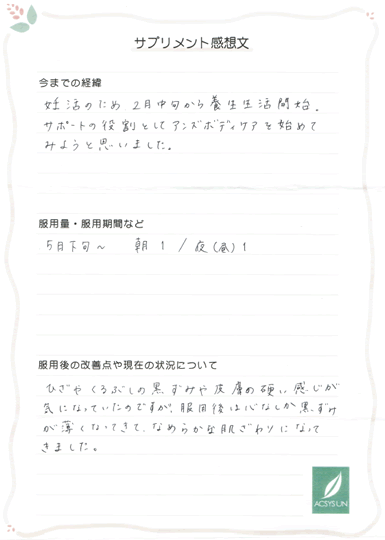 サプリメント感想文
今までの経緯
妊活のため 2月中旬から養生生活開始。
サポートの役割としてアンズボディケアを始めて
みようと思いました。
服用量・服用期間など
5月下旬~ 朝1 / 夜(昼)1
服用後の改善点や現在の状況について
ひざやくるぶしの黒ずみや皮膚の硬い感じが
気になっていたのですが、服用後は心なしか黒ずみ
が薄くなってきて、なめらかな肌ざわりになって
きました。
ACSYSUN